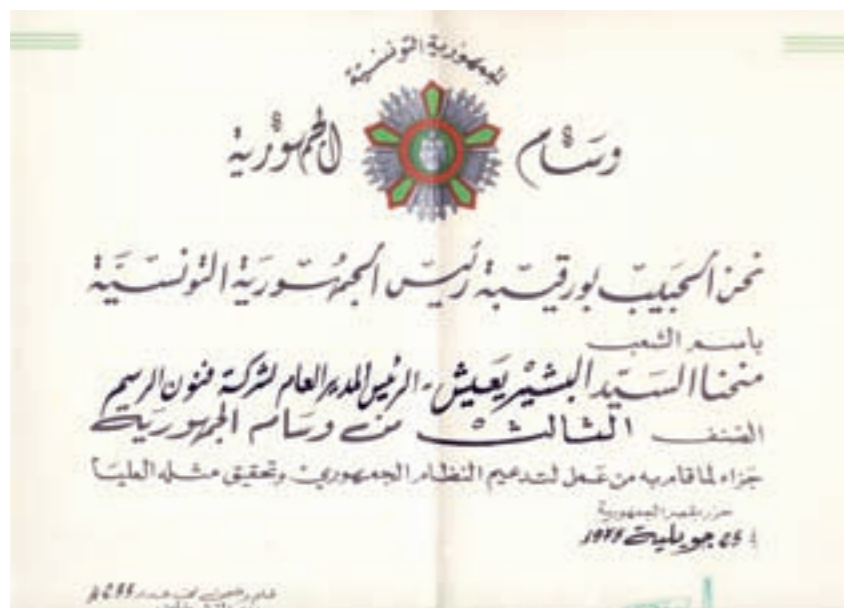 الجمهورية التونسية
وسام الجمهورية
نحن الحبيب بورقيبة رئيس الجمهورية التونسية
باسم الشعب
منحنا السيد البشير يعيش - الرئيس المدير العام لشركة فنون الرسم
الصنف الثالث من وسام الجمهورية
جزاء لما قام به من عمل لتدعيم النظام الجمهوري وتحقيق مثله العليا
حرر بقصر الجمهورية
في 25 جويلية